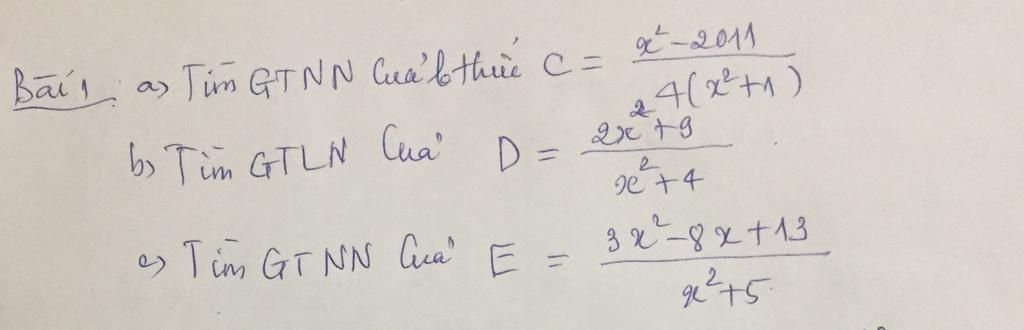 Bài 1: a) Tìm GTNN Của b thức C = x² - 2011 / 4(x²+1)
b) Tìm GTLN Của D = 2x²+9 / x²+4
c) Tìm GTNN Của E = 3x² - 8x + 13 / x²+5